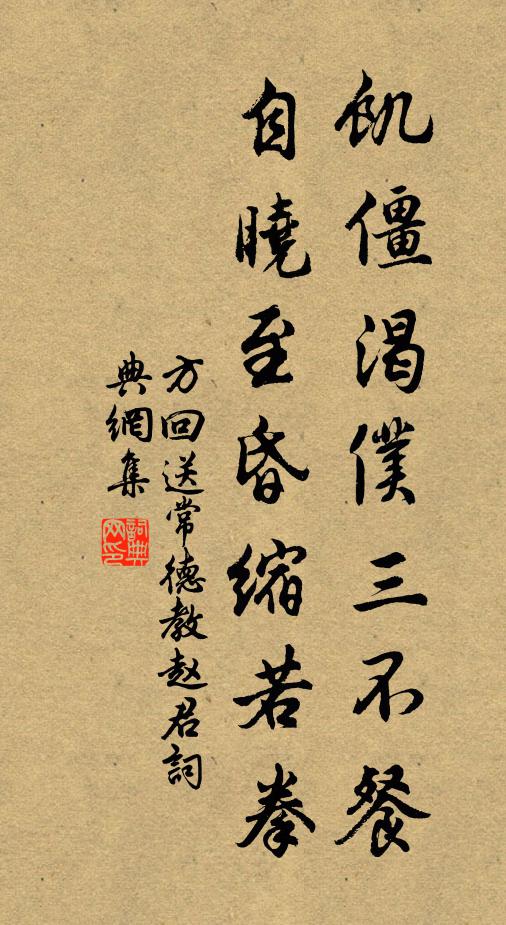 飢僵渴僕三不餐
自曉至昏縮若拳
方回送常德教赵君詞
典網集
詞典网印